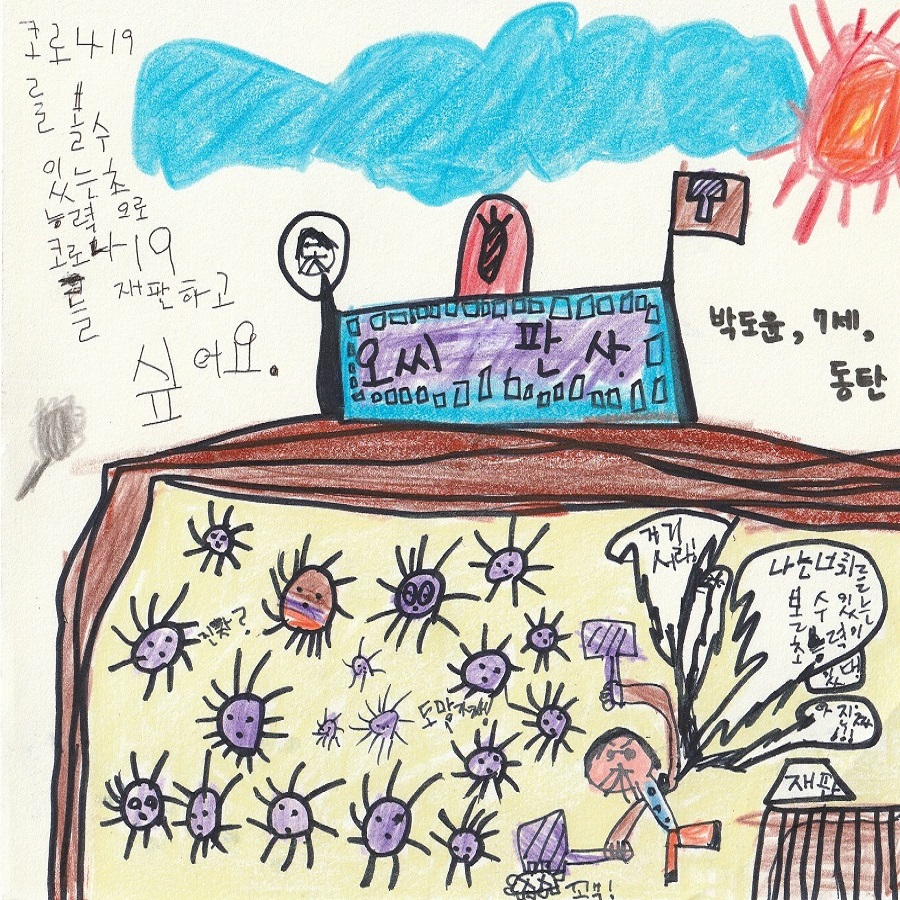 코로나19
를 볼수
있는초
능력 으로
코로나19
를 재판하고
싶어요.
오씨 판사.
박도윤, 7세,
동탄
거기
서라!
나는너희를
볼 수 있는
초능력이
있
진짜?
도망쳐!
재판